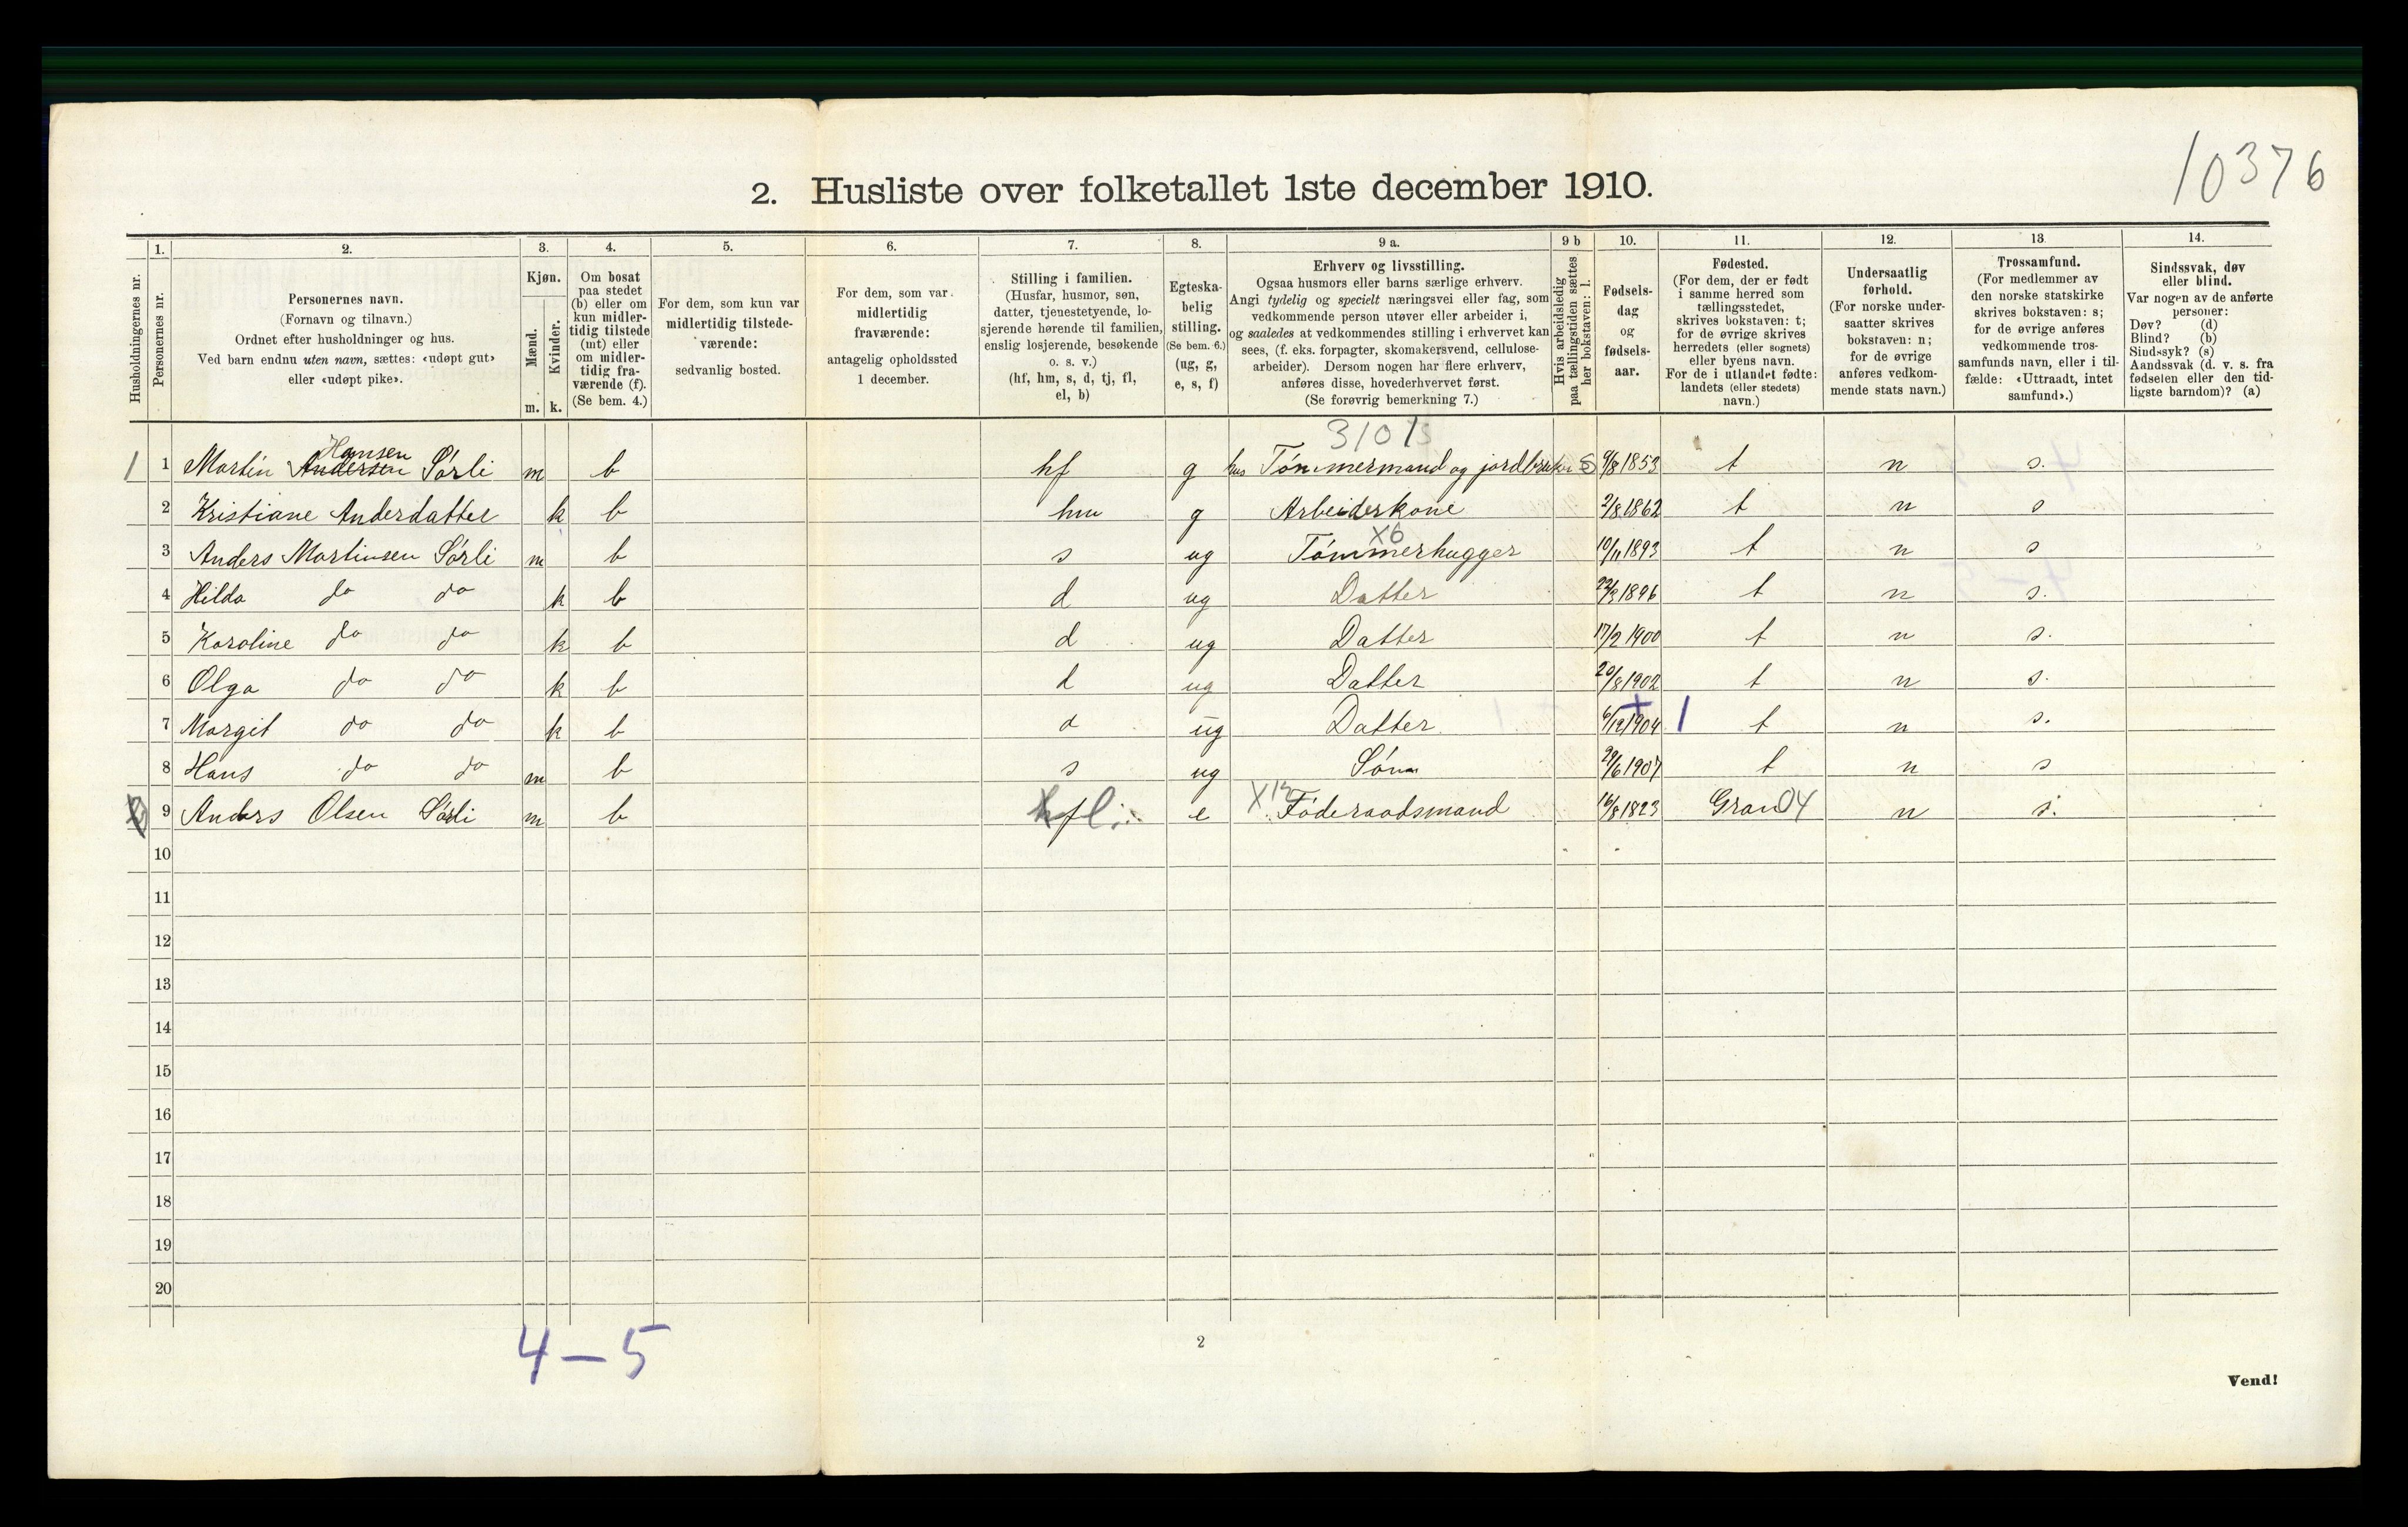 10376
2. Husliste over folketallet 1ste december 1910.
Husholdningernes nr.
1.
Personernes nr.
2.
Personernes navn.
(Fornavn og tilnavn.)
Ordnet efter husholdninger og hus.
Ved barn endnu uten navn, sættes: «udøpt gut»
eller «udøpt pike».
3.
Kjøn.
Mænd.
Kvinder.
m. k.
4.
Om bosat
paa stedet
(b) eller om
kun midler-
tidig tilstede
(mt) eller
om midler-
tidig fra-
værende (f).
(Se bem. 4.)
5.
For dem, som kun var
midlertidig tilstede-
værende:
sedvanlig bosted.
6.
For dem, som var
midlertidig
fraværende:
antagelig opholdssted
1 december.
7.
Stilling i familien.
(Husfar, husmor, søn,
datter, tjenestetyende, lo-
sjerende hørende til familien,
enslig losjerende, besøkende
o. s. v.)
(hf, hm, s, d, tj, fl,
el, b)
8.
Egteska-
belig
stilling.
(Se bem. 6.)
(ug, g,
e, s, f)
9 a.
Erhverv og livsstilling.
Ogsaa husmors eller barns særlige erhverv.
Angi tydelig og specielt næringsvei eller fag, som
vedkommende person utøver eller arbeider i,
og saaledes at vedkommendes stilling i erhvervet kan
sees, (f. eks. forpagter, skomakersvend, cellulose-
arbeider). Dersom nogen har flere erhverv,
anføres disse, hovederhvervet først.
(Se forøvrig bemerkning 7.)
9 b
Hvis arbeidsledig
paa tællingstiden sættes
her bokstaven: l.
10.
Fødsels-
dag
og
fødsels-
aar.
11.
Fødested.
(For dem, der er født
i samme herred som
tællingsstedet,
skrives bokstaven: t;
for de øvrige skrives
herredets (eller sognets)
eller byens navn.
For de i utlandet fødte:
landets (eller stedets)
navn.)
12.
Undersaatlig
forhold.
(For norske under-
saatter skrives
bokstaven: n;
for de øvrige
anføres vedkom-
mende stats navn.)
13.
Trossamfund.
(For medlemmer av
den norske statskirke
skrives bokstaven: s;
for de øvrige anføres
vedkommende tros-
samfunds navn, eller i til-
fælde: «Uttraadt, intet
samfund».)
14.
Sindssvak, døv
eller blind.
Var nogen av de anførte
personer:
Døv? (d)
Blind? (b)
Sindssyk? (s)
Aandssvak (d. v. s. fra
fødselen eller den tid-
ligste barndom)? (a)
3101
Hansen
1 1 Martin Andersen Sørli m b hf g hus Tømmermand og jordbruker S 9/8 1853 t n s.
2 Kristiane Andersdatter k b hm g Arbeiderkone 2/8 1862 t n s
X6
3 Anders Martinsen Sørli m b s ug Tømmerhugger 10/11 1893 t n s
4 Hilda do do k b d ug Datter 22/3 1896 t n s.
5 Karoline do do k b d ug Datter 17/2 1900 t n s.
6 Olga do do k b d ug Datter 20/8 1902 t n s.
7 Margit do do k b d ug Datter 6/12 1904 1 t n s.
8 Hans do do m b s ug Søn 29/6 1907 t n s
9 Anders Olsen Sørli m b fl. e X12 Føderaadsmand 16/8 1823 Gran 04 n s.
10
11
12
13
14
15
16
17
18
19
20
4 – 5
2
Vend!